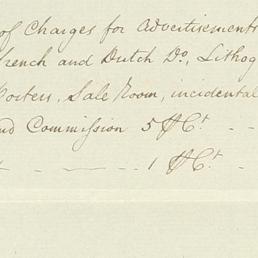 of Charges for Advertisements
French and Dutch Do, Lithog
Porters, Sale Room, incidental
and Commission 5 P Ct. - -
- - - 1 P Ct. -